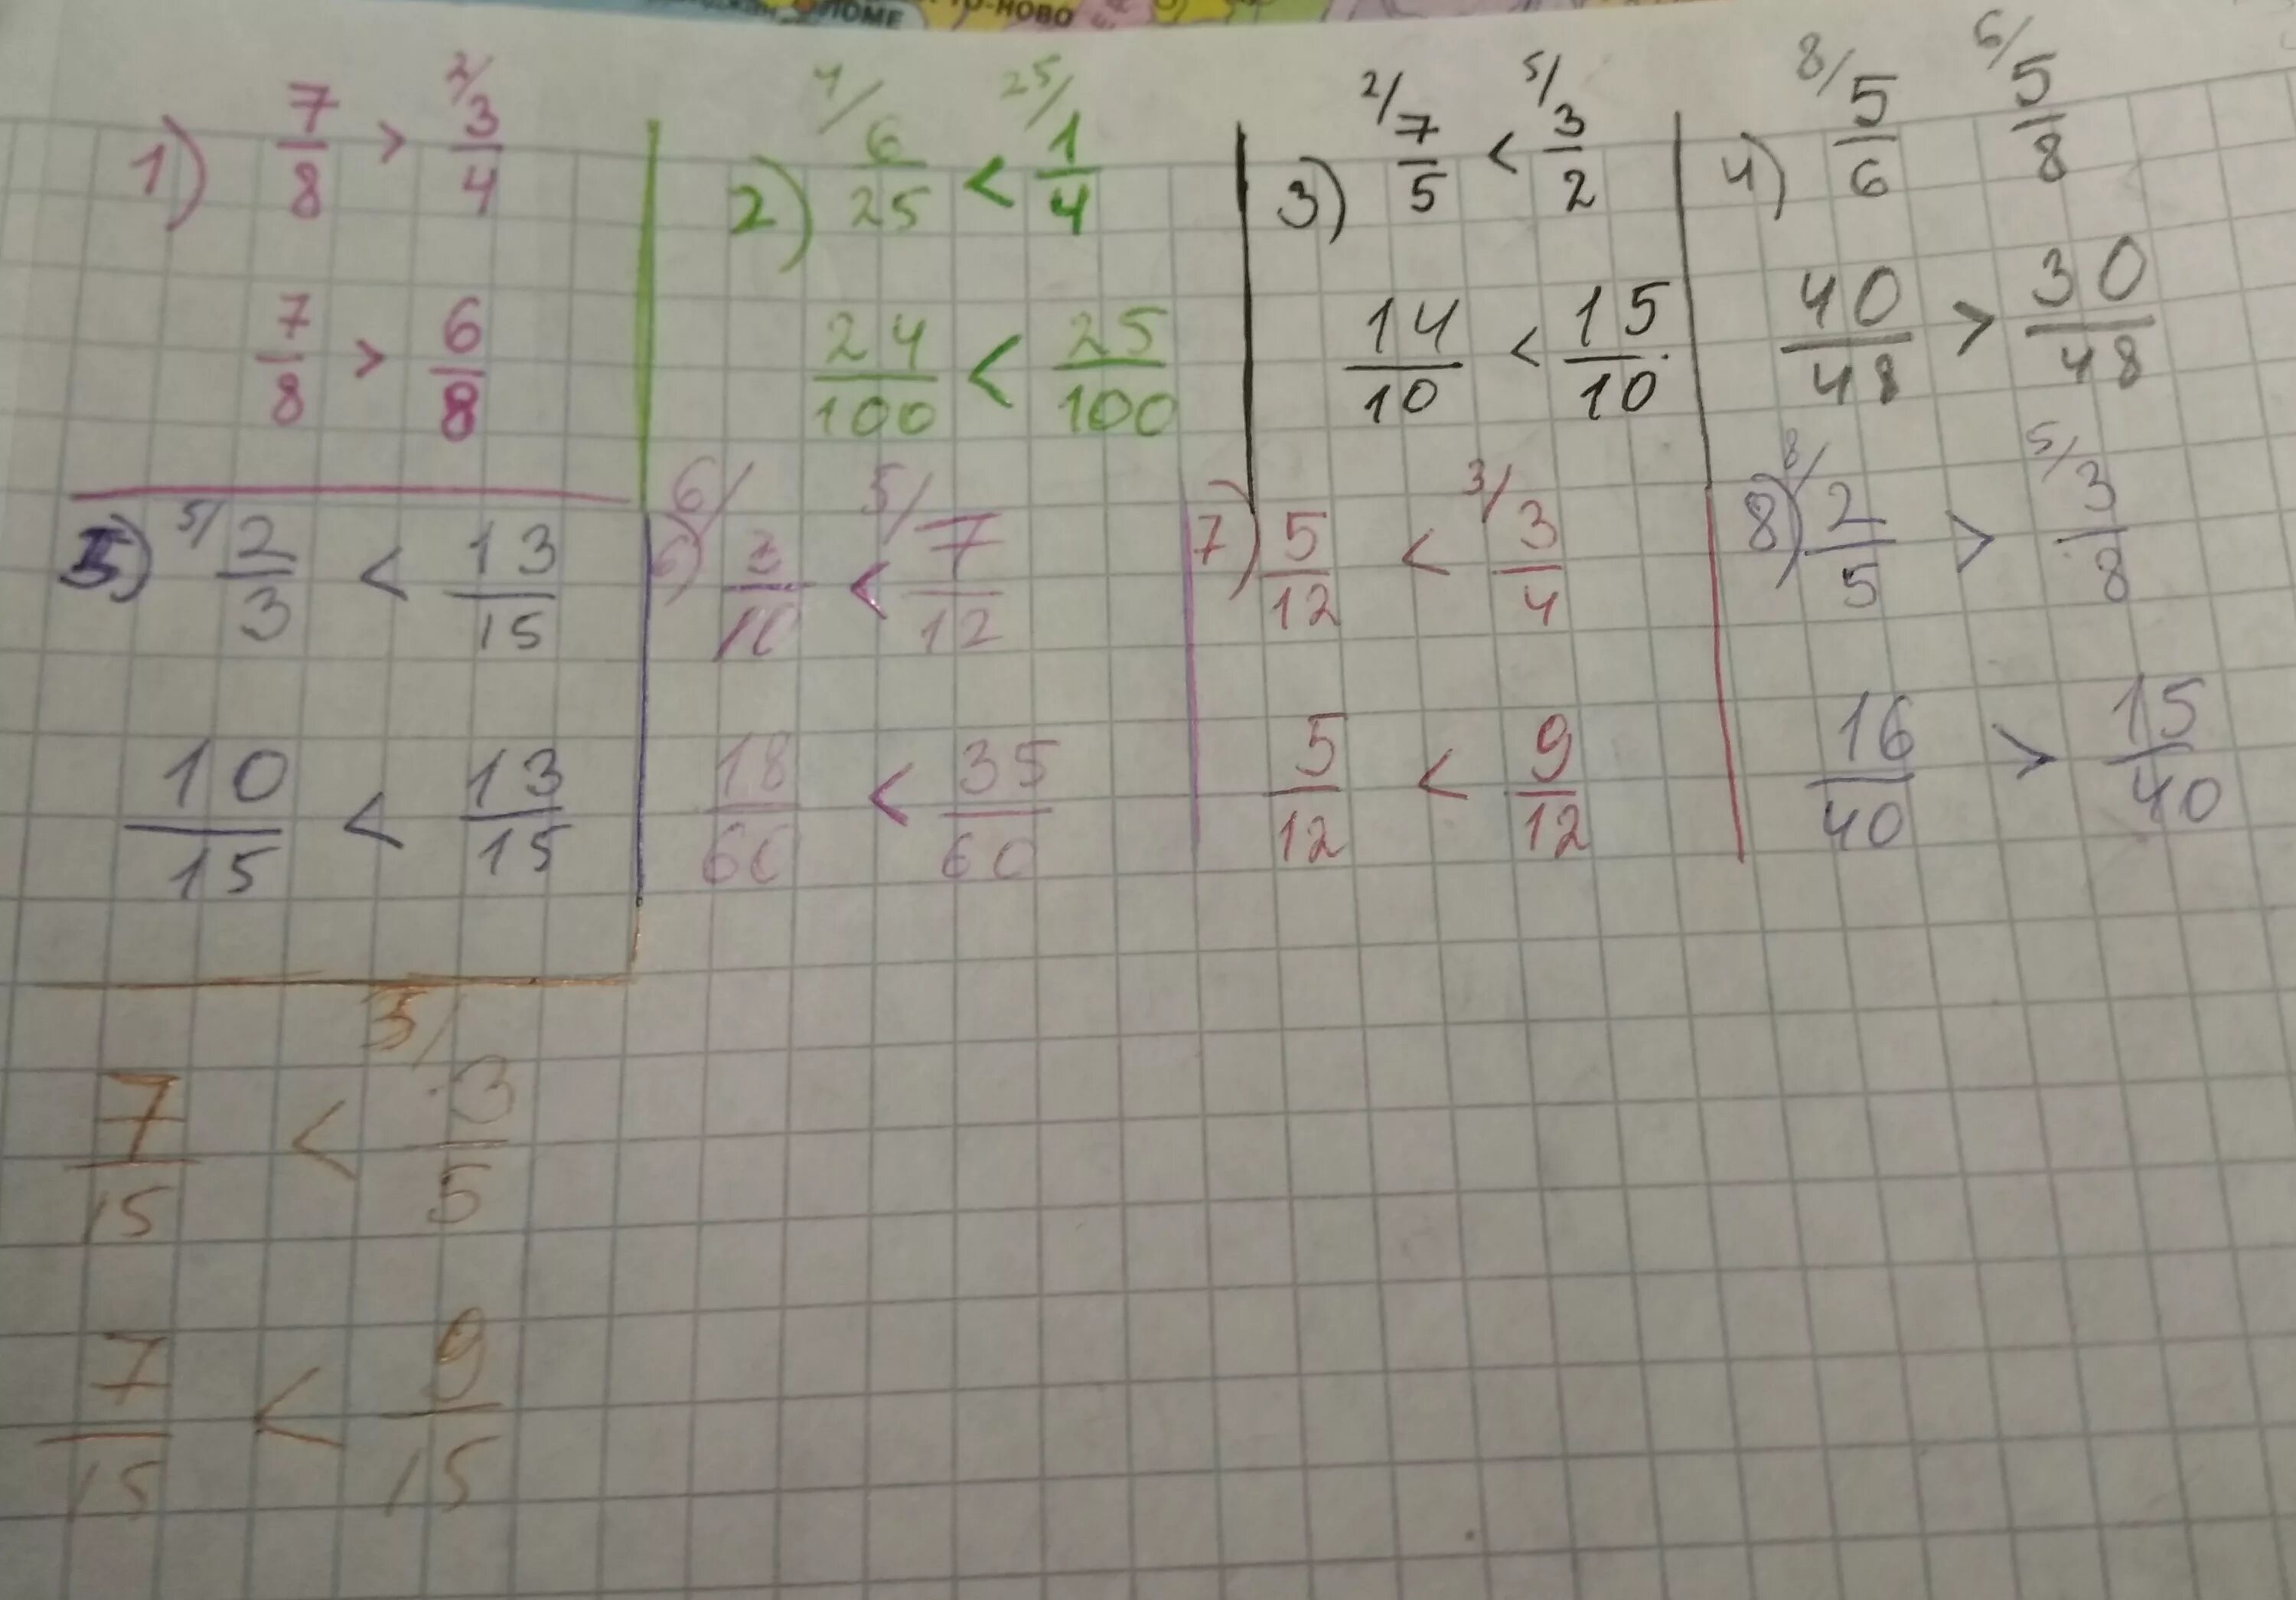 ЛОМЕ
О-НОВО
1) 7/8 > 2/ 3/4
7/8 > 6/8
2) 4/ 6/25 < 25/ 1/4
24/100 < 25/100
3) 2/ 7/5 < 5/ 3/2
14/10 < 15/10
4) 8/ 5/6 6/ 5/8
40/48 > 30/48
5) 5/ 2/3 < 13/15
10/15 < 13/15
6) 6/ 3/10 < 5/ 7/12
18/60 < 35/60
7) 5/12 < 3/ 3/4
5/12 < 9/12
8) 8/ 2/5 > 5/ 3/8
16/40 > 15/40
7/15 < 3/ 3/5
7/15 < 9/15